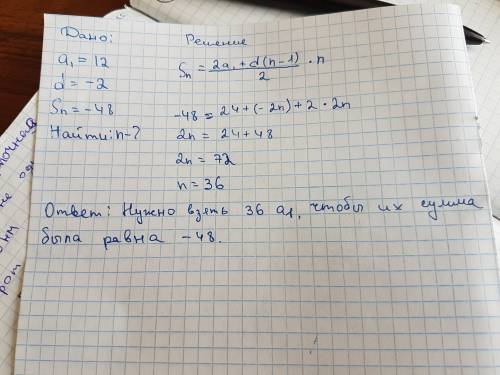 Дано:
a₁ = 12
d = -2
Sn = -48
Найти: n-?
Решение
Sn = 2a₁ + d(n-1) / 2 · n
-48 = 24 + (-2n) + 2 · 2n
2n = 24 + 48
2n = 72
n = 36
Ответ: Нужно взять 36 a₁, чтобы их сумма
была равна -48.